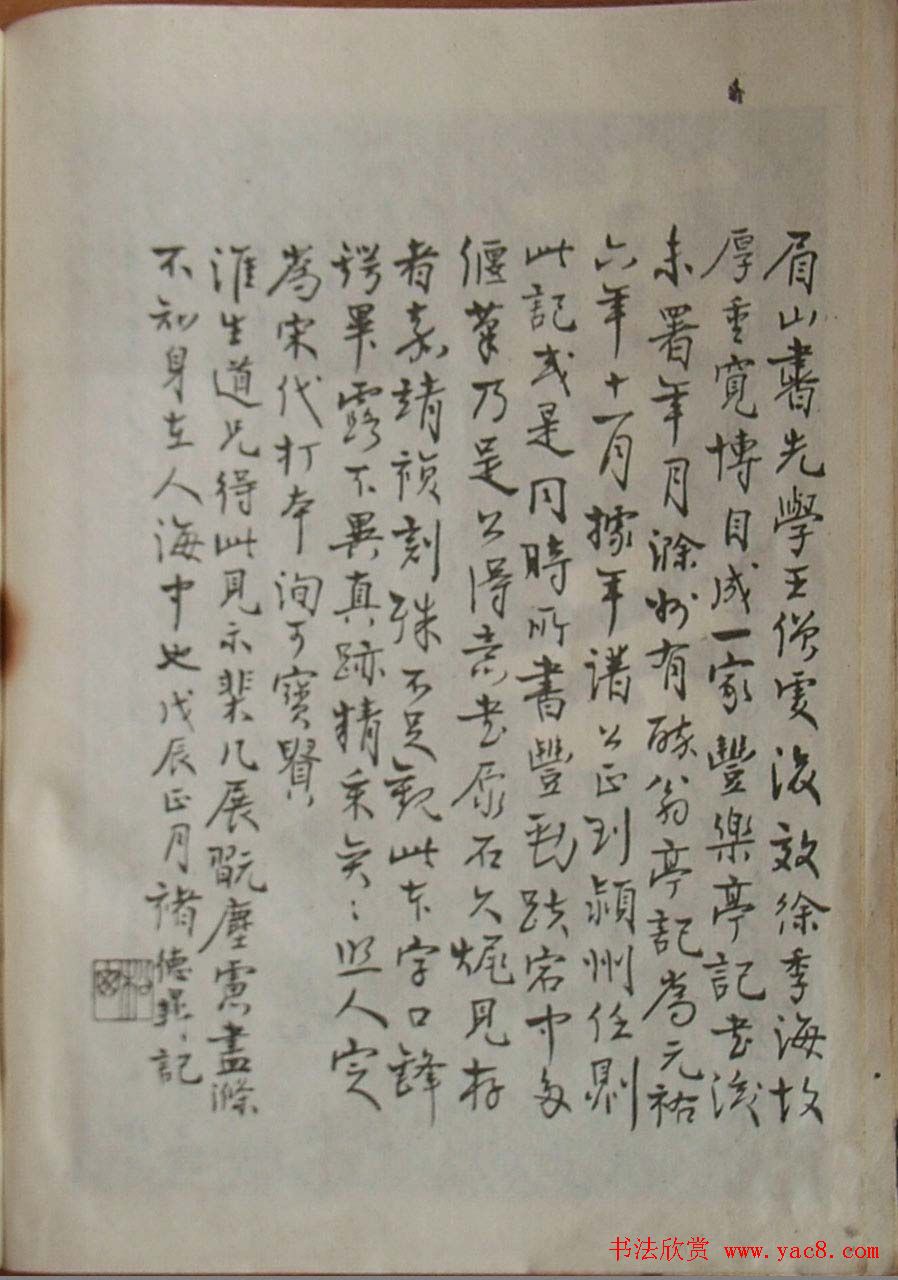 眉山書先學王僧虔後效徐季海故
厚重寬博自成一家豐樂亭記書後
未署年月滁州有醉翁亭記為元祐
六年十一月據年譜公正到潁州任
此記或是同時所書豐跌宕中多
偃筆乃是公得意書原石久燬見存
者嘉靖刻殊不足觀此本字口鋒
鍔畢露不異真跡精采奕〻照人定
為宋代打本洵可寶賢
淮生道兄得此見示棐几展翫塵慮盡滌
不知身在人海中也戊辰正月褚德彝記
书法欣赏 www.yac8.com